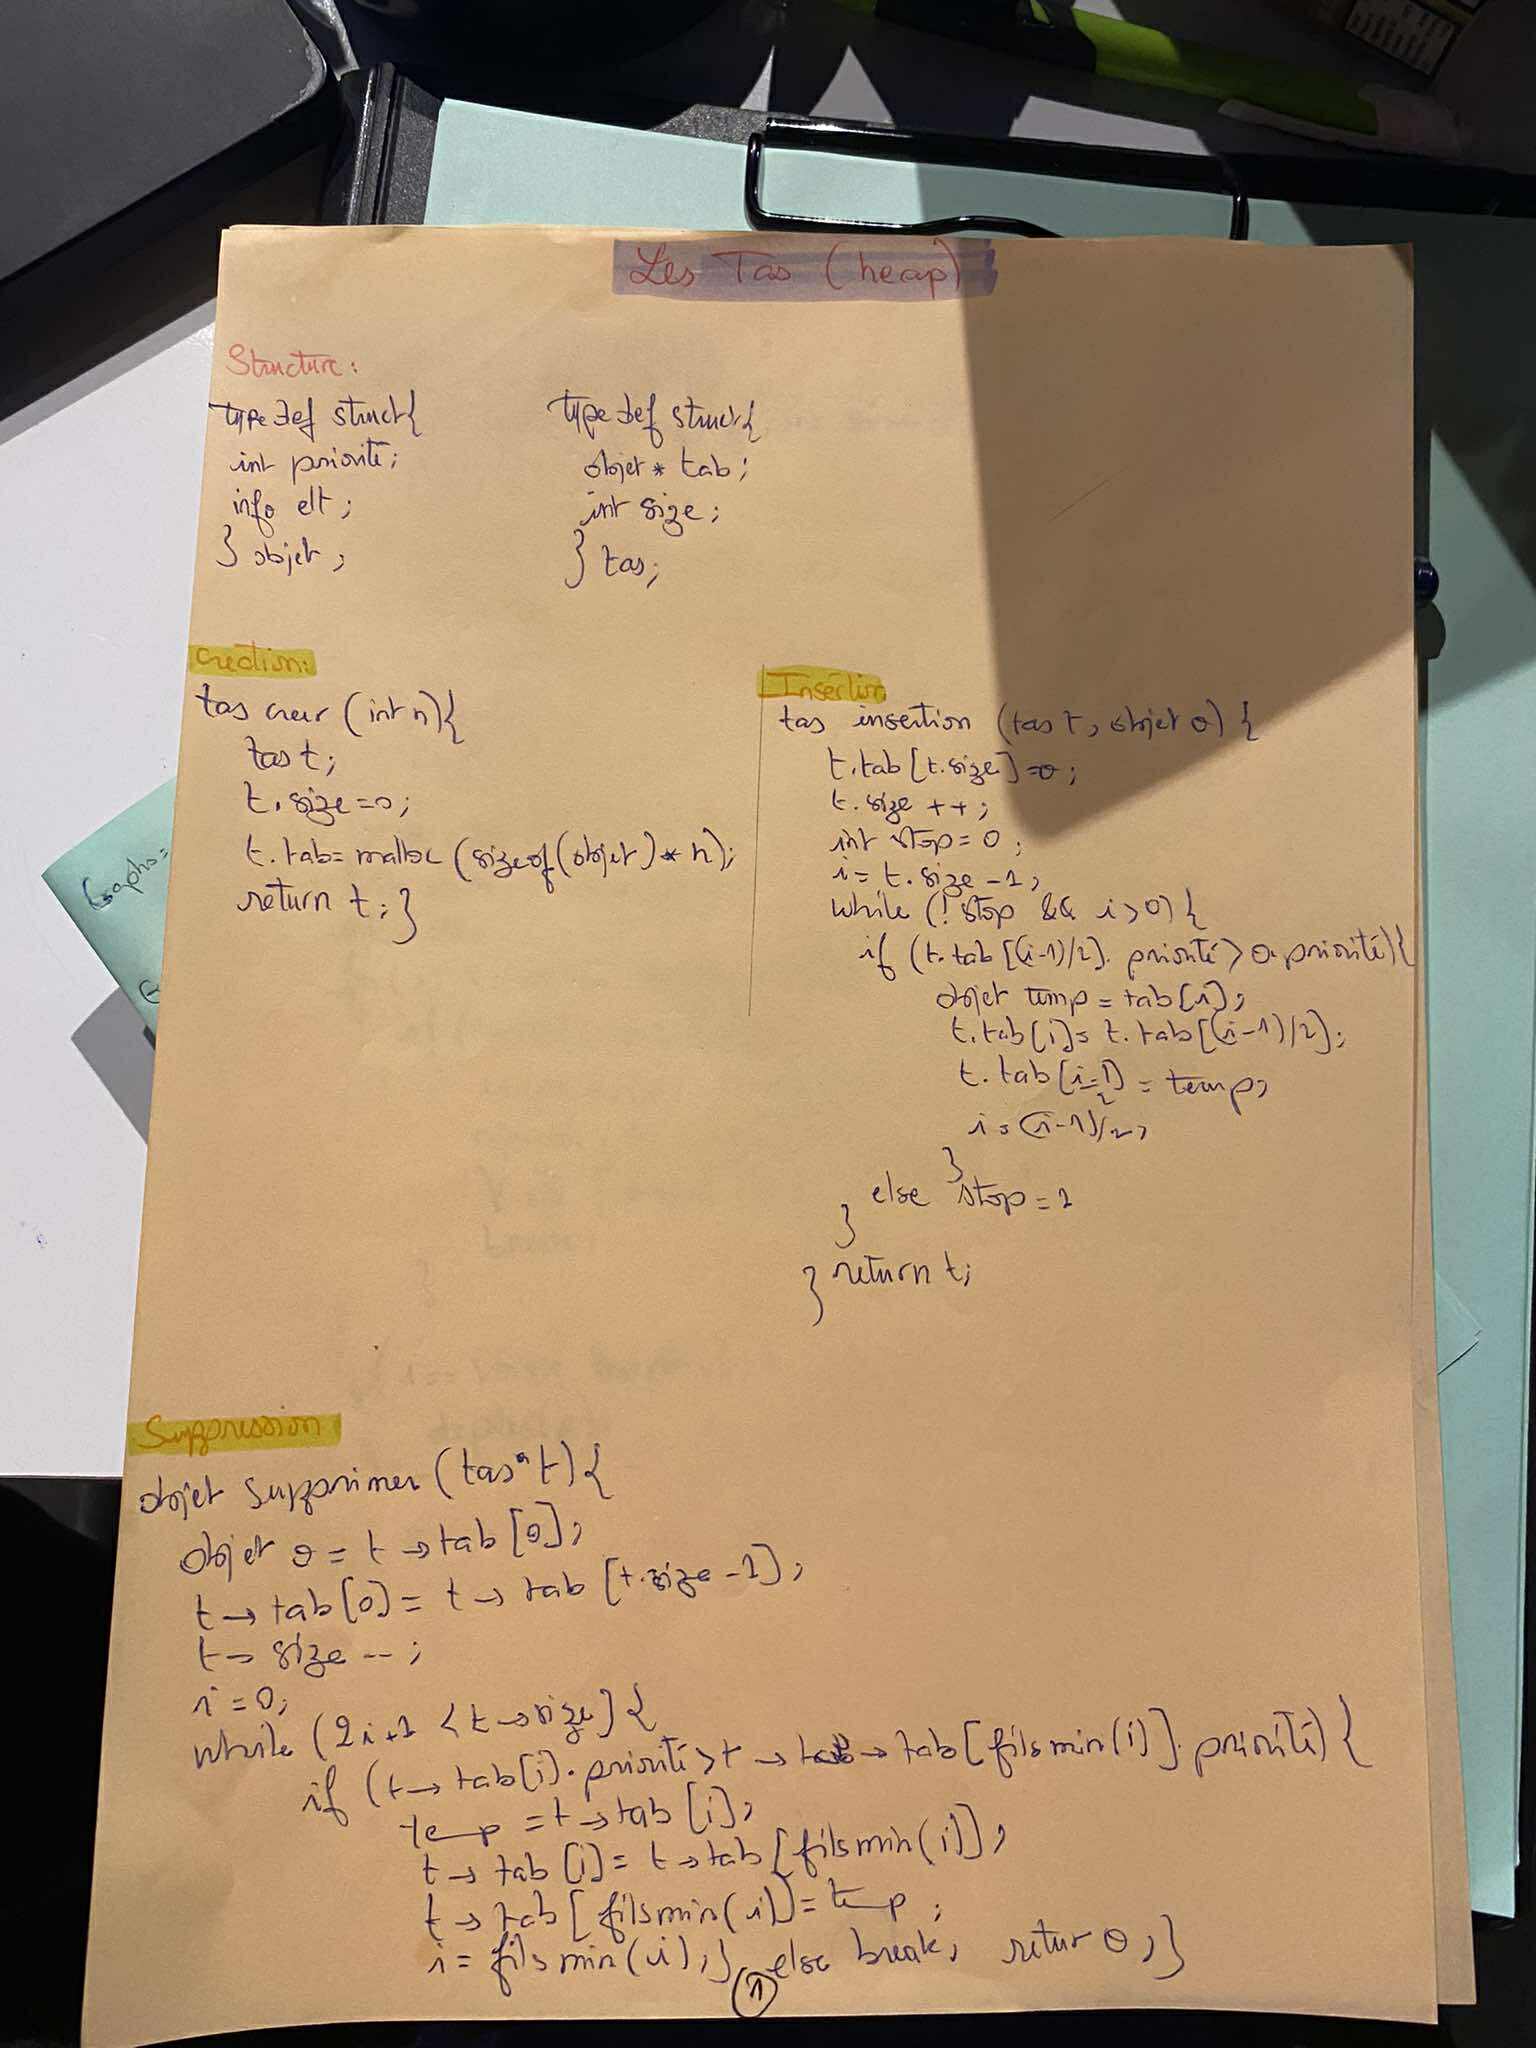 Les Tas (heap)
Structure:
typedef struct{
int priorité;
info elt;
} objet;
typedef struct{
objet * tab;
int size;
} tas;
Creation:
tas creer (int n){
tas t;
t. size=0;
t. tab= malloc (sizeof(objet) * n);
return t; }
Insertion
tas insertion (tas t, objet o) {
t.tab[t.size]=o;
t. size ++;
int stop = 0;
i= t. size -1;
while (! stop && i>0) {
if (t. tab[(i-1)/2]. priorité > o. priorité){
objet temp = tab[i];
t. tab[i]= t. tab[(i-1)/2];
t. tab[i-1/2] = temp;
i = (i-1)/2;
}
else stop = 1
}
} return t;
Suppression
objet supprimer (tas* t) {
objet o = t → tab [0];
t → tab [0] = t → tab [t.size -1];
t → size --;
i = 0;
while (2i+1 < t → size] {
if (t → tab[i]. priorité > t → tab → tab [filsmin(i)]. priorité) {
temp = t → tab [i];
t → tab [i] = t → tab [filsmin(i)];
t → tab [filsmin(i)] = temp;
i = filsmin(i); } else break; retur o; }
1
Graphs=